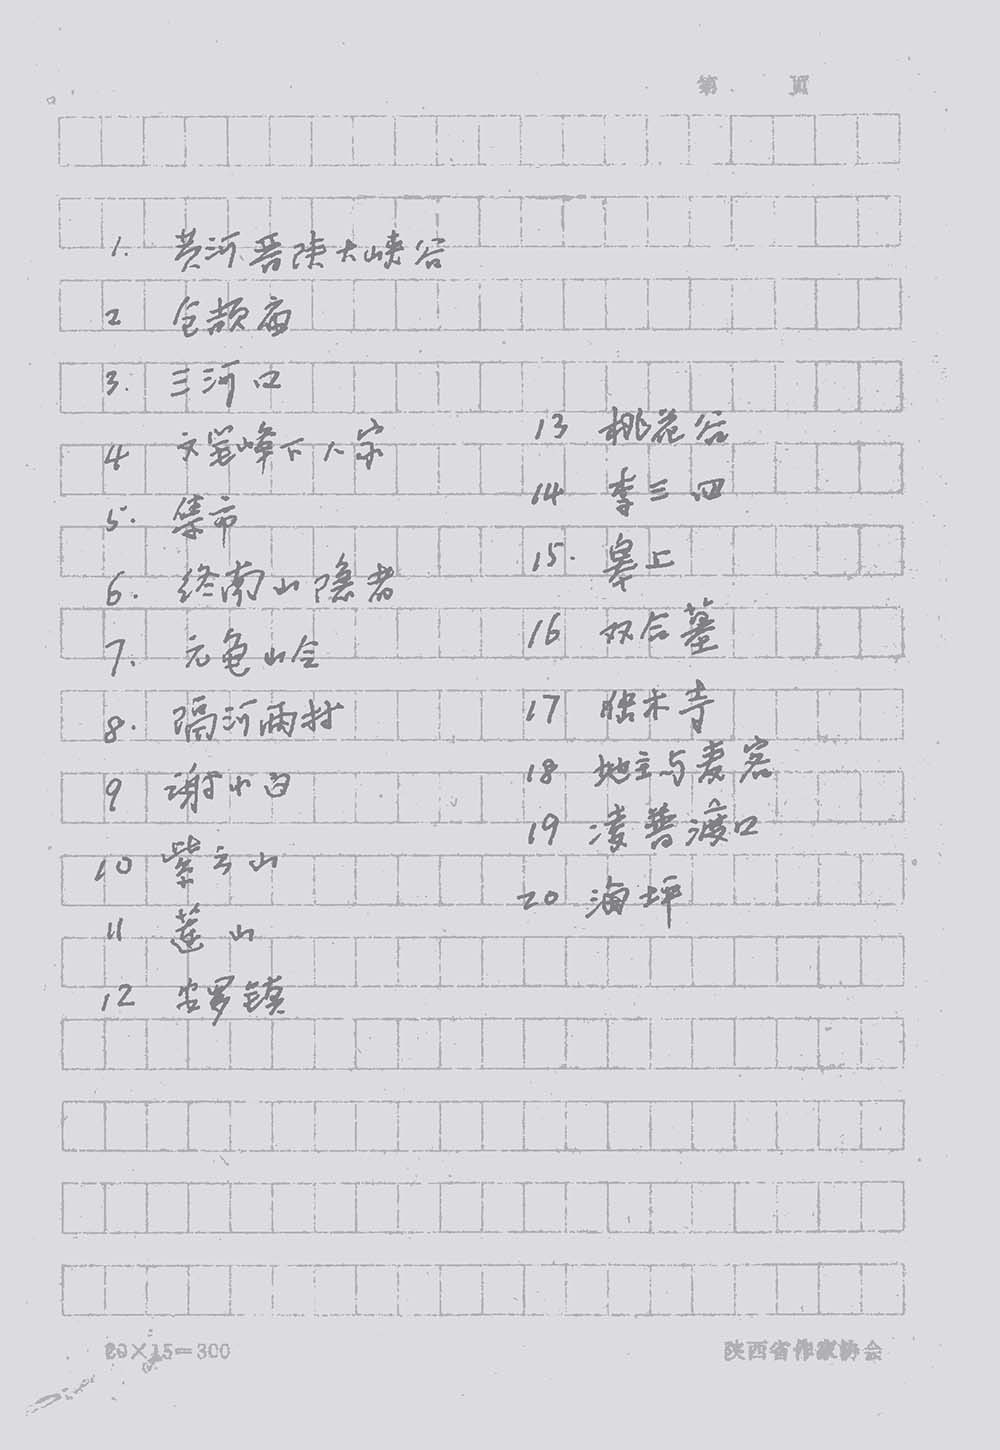 第 页
1. 黄河晋陕大峡谷
2 仓颉庙
3. 三河口
4 文笔峰下人家
5. 集市
6. 终南山隐者
7. 元龟山
8. 隔河两村
9 谢小白
10 紫云山
11 莲山
12 安罗镇
13 桃花谷
14 李三四
15. 皋上
16 双合墓
17 独木寺
18 地主与麦客
19 凌普渡口
20 海坪
20×15=300
陕西省作家协会